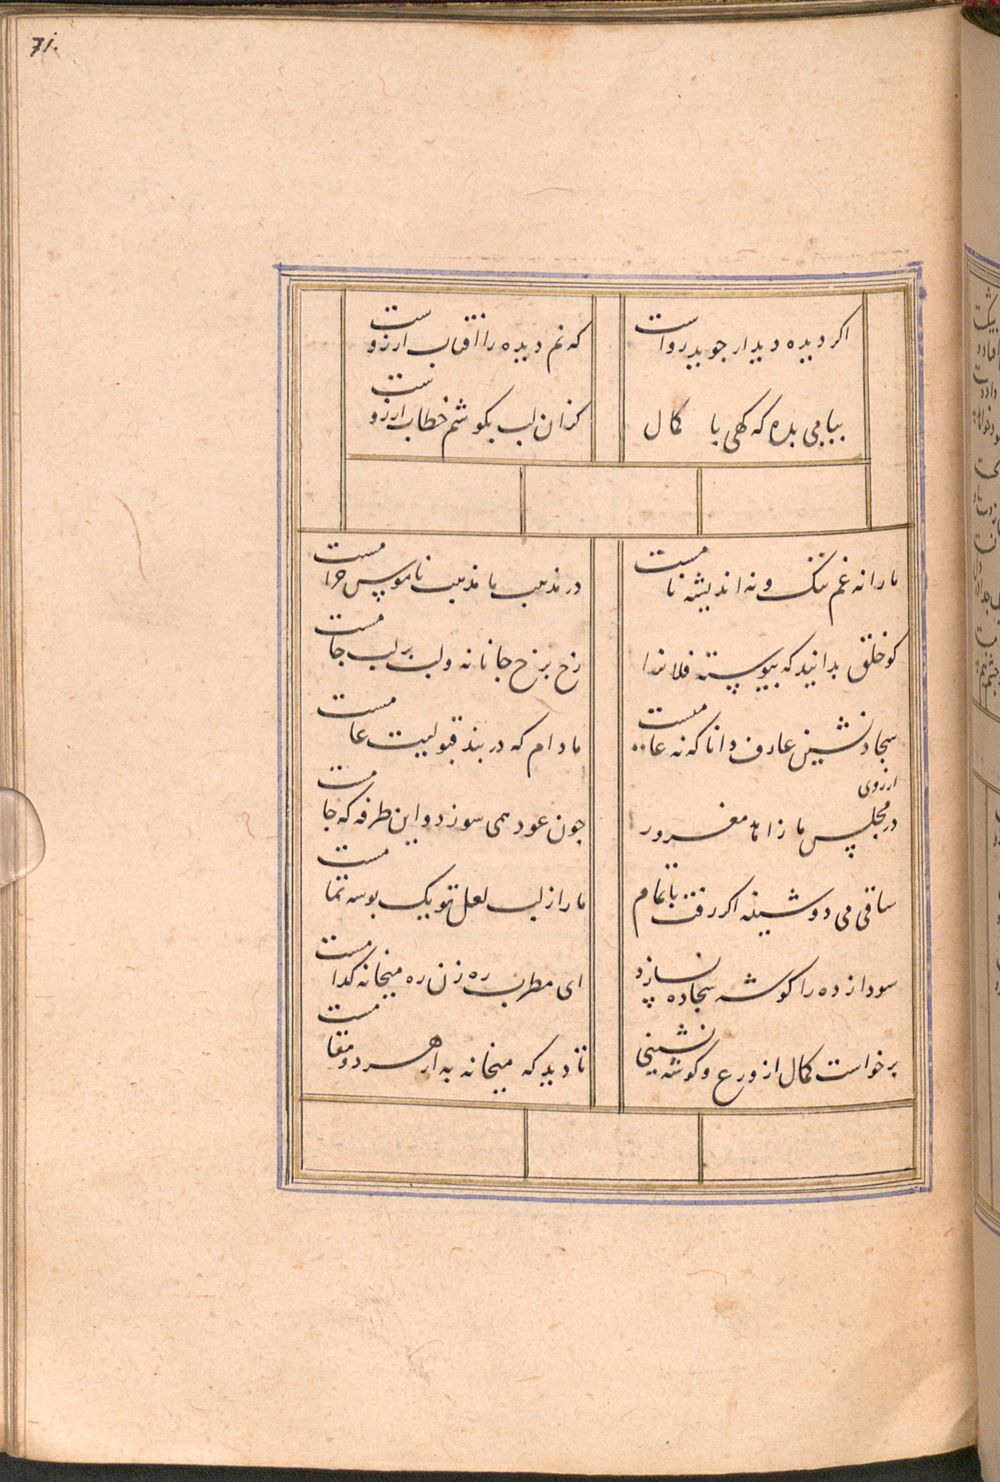 71.
اکر دیده دیدار جوید رواست
که نم دیده را آفتاب ارزوست
بیا می بده که کهی با کمال
کزان لب بکوشم خطاب ارزوست
ما را نه غم ننک و نه اندیشه نامست
در مذهب ما مذهب ناموس حرامست
کو خلق بدانید که پیوسته فلانرا
رخ بر رخ جانانه و لب بر لب جامست
سجاده نشین عارف دانا که نه عامست
مادام که در بند قبولیست عامست
ارزوی
در مجلس ما زاهد مغرور
چون عود همی سوزد و این طرفه که جامست
ساقی می دوشینه اکر رفت باتمام
ما را ز لب لعل تو یک بوسه تمامست
سودازده را کوشه سجاده نسازد
ای مطرب ره زن ره میخانه کدامست
برخواست کمال از ورع و کوشه نشینی
تا دید که میخانه به از هر دو مقامست